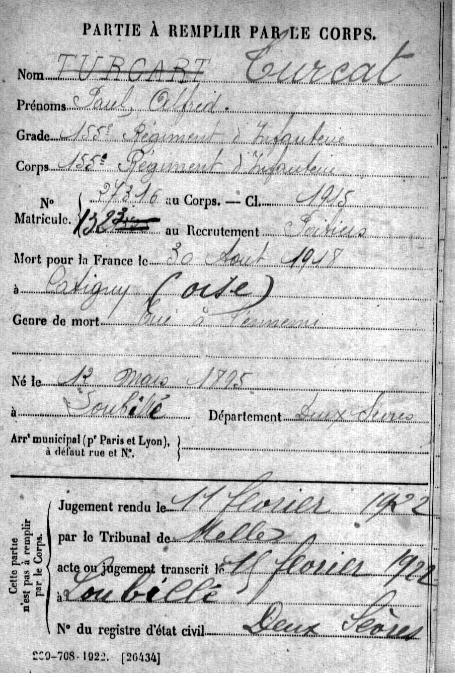 PARTIE À REMPLIR PAR LE CORPS.
Nom TURCART Turcat
Prénoms Paul, Alfred.
Grade 155e Régiment d'Infanterie
Corps 155e Régiment d'Infanterie
N° 27316 au Corps. — Cl. 1915
Matricule. 132 au Recrutement Poitiers
Mort pour la France le 30 Aout 1918
à Catigny (oise)
Genre de mort Tué à l'ennemi
Né le 12 Mars 1895
à Loubillé Département Deux Sèvres
Arrt municipal (pr Paris et Lyon),
à défaut rue et N°.
Cette partie
n'est pas à remplir
par le Corps.
Jugement rendu le 11 février 1922
par le Tribunal de Melle
acte ou jugement transcrit le 15 février 1922
à Loubillé
Deux Sèvres
N° du registre d'état civil
299-708-1922. [26434]